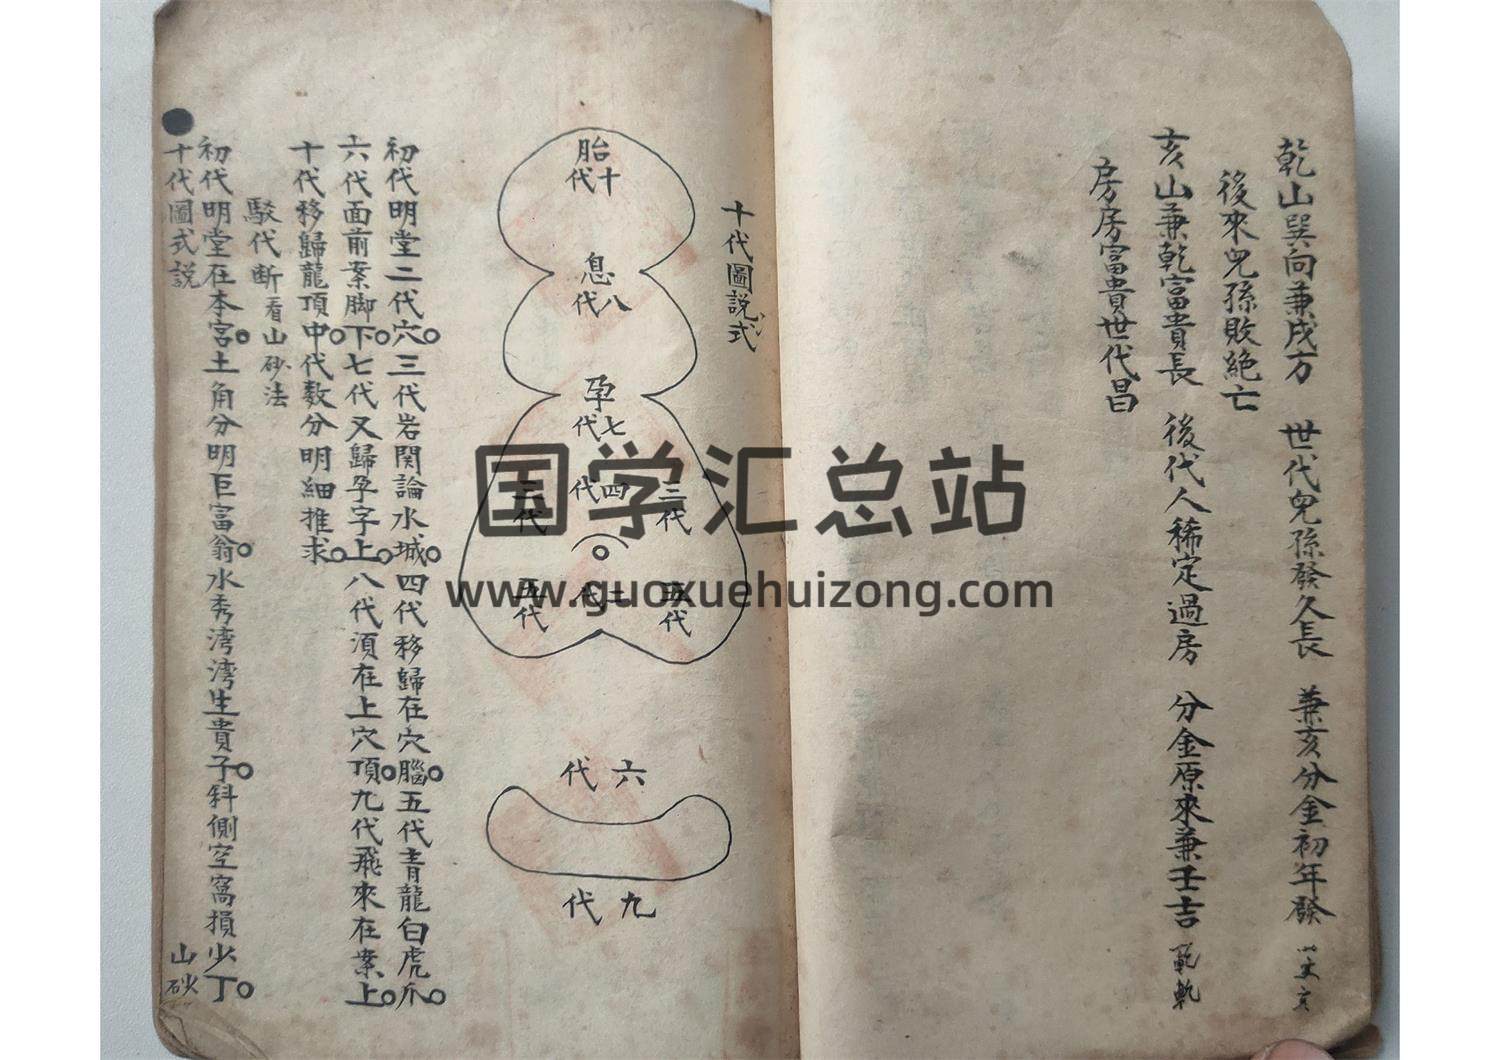 乾山巽向兼戌方 世代兒孫發久長 兼亥分金初年發
後來兒孫敗絕亡
亥山兼乾富貴長 後代人稀定過房 分金原來兼壬吉
房房富貴世代昌
十代圖說式
胎
十代
息
八代
孕
七代
三代
四代
三代
五代
二代
五代
六代
九代
初代明堂二代穴三代岩関論水城四代移歸在穴腦五代青龍白虎爪
六代面前案脚下七代又歸孕字上八代湏在上穴頂九代飛來在案上
十代移歸龍頂中代数分明細推求
駁代断看山砂法
初代明堂在本宮土角分明巨富翁水秀湾湾生貴子斜側空窩損少丁
十代圖式說
山砂
国学汇总站
www.guoxuehuizong.com